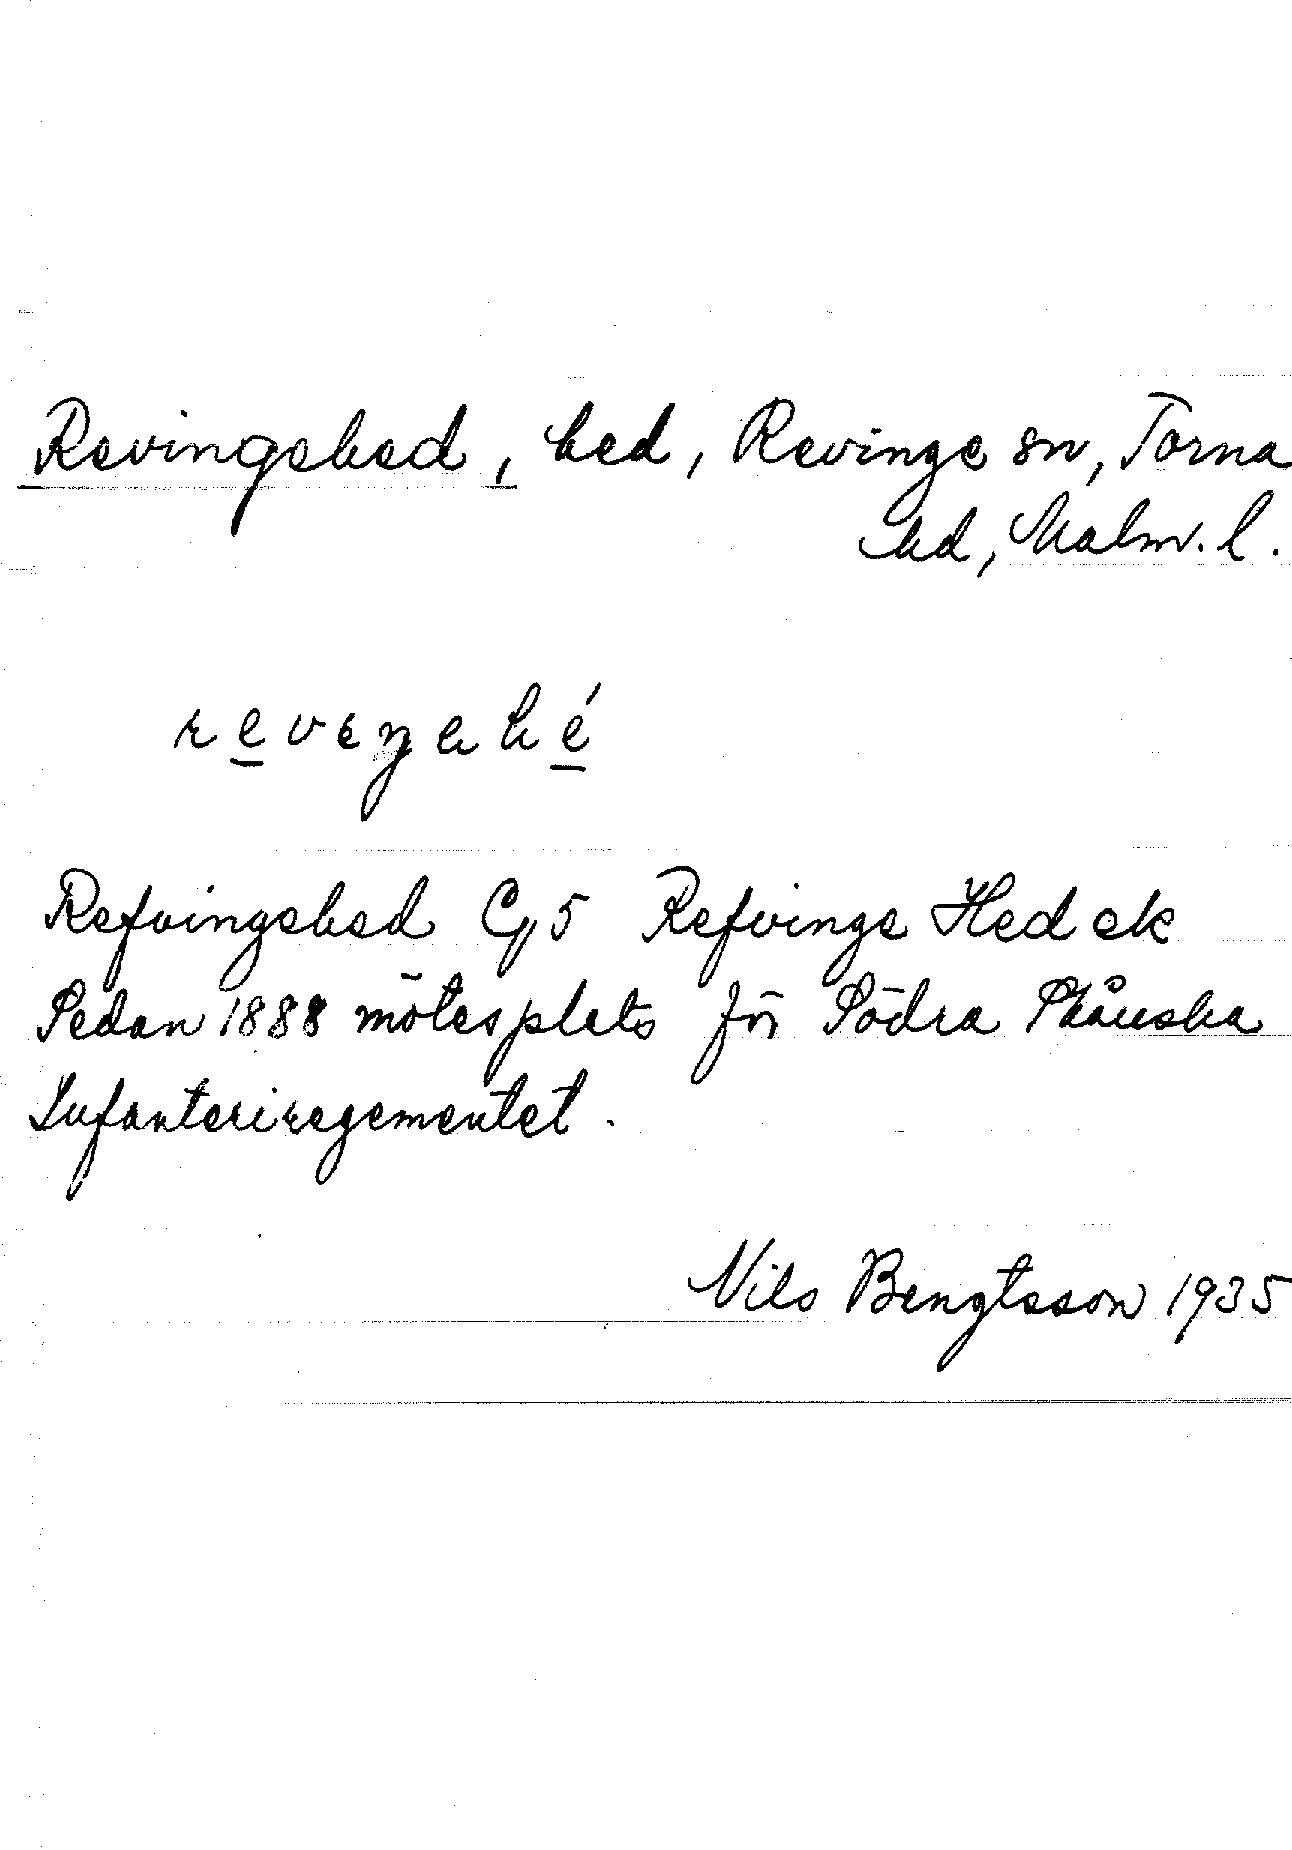 Revingehed, hed, Revinge sn, Torna
hd, Malm. l.
revɛŋahé
Refvingehed Gg 5 Refvinge Hed ek
Sedan 1888 mötesplats för Södra Skånska
Infanteriregementet.
Nils Bengtsson 1935